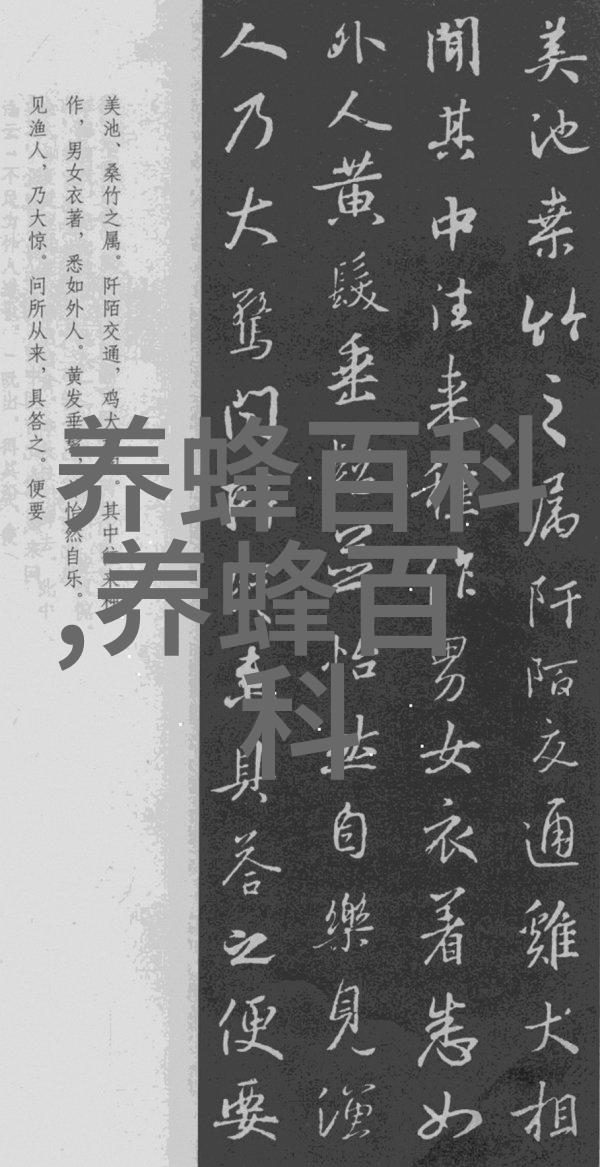 美池桒竹之属阡陌交通雞犬相
聞其中往来種作男女衣着悉如
外人黄髮垂髫並怡然自樂見漁
人乃大驚問所来具荅之便要
美池、桑竹之属。阡陌交通，鸡犬。其中来种
作，男女衣著，悉如外人。黄发垂，怡然自乐。
见渔人，乃大惊。问所从来，具答之。便要
养蜂百科
,养蜂百
科